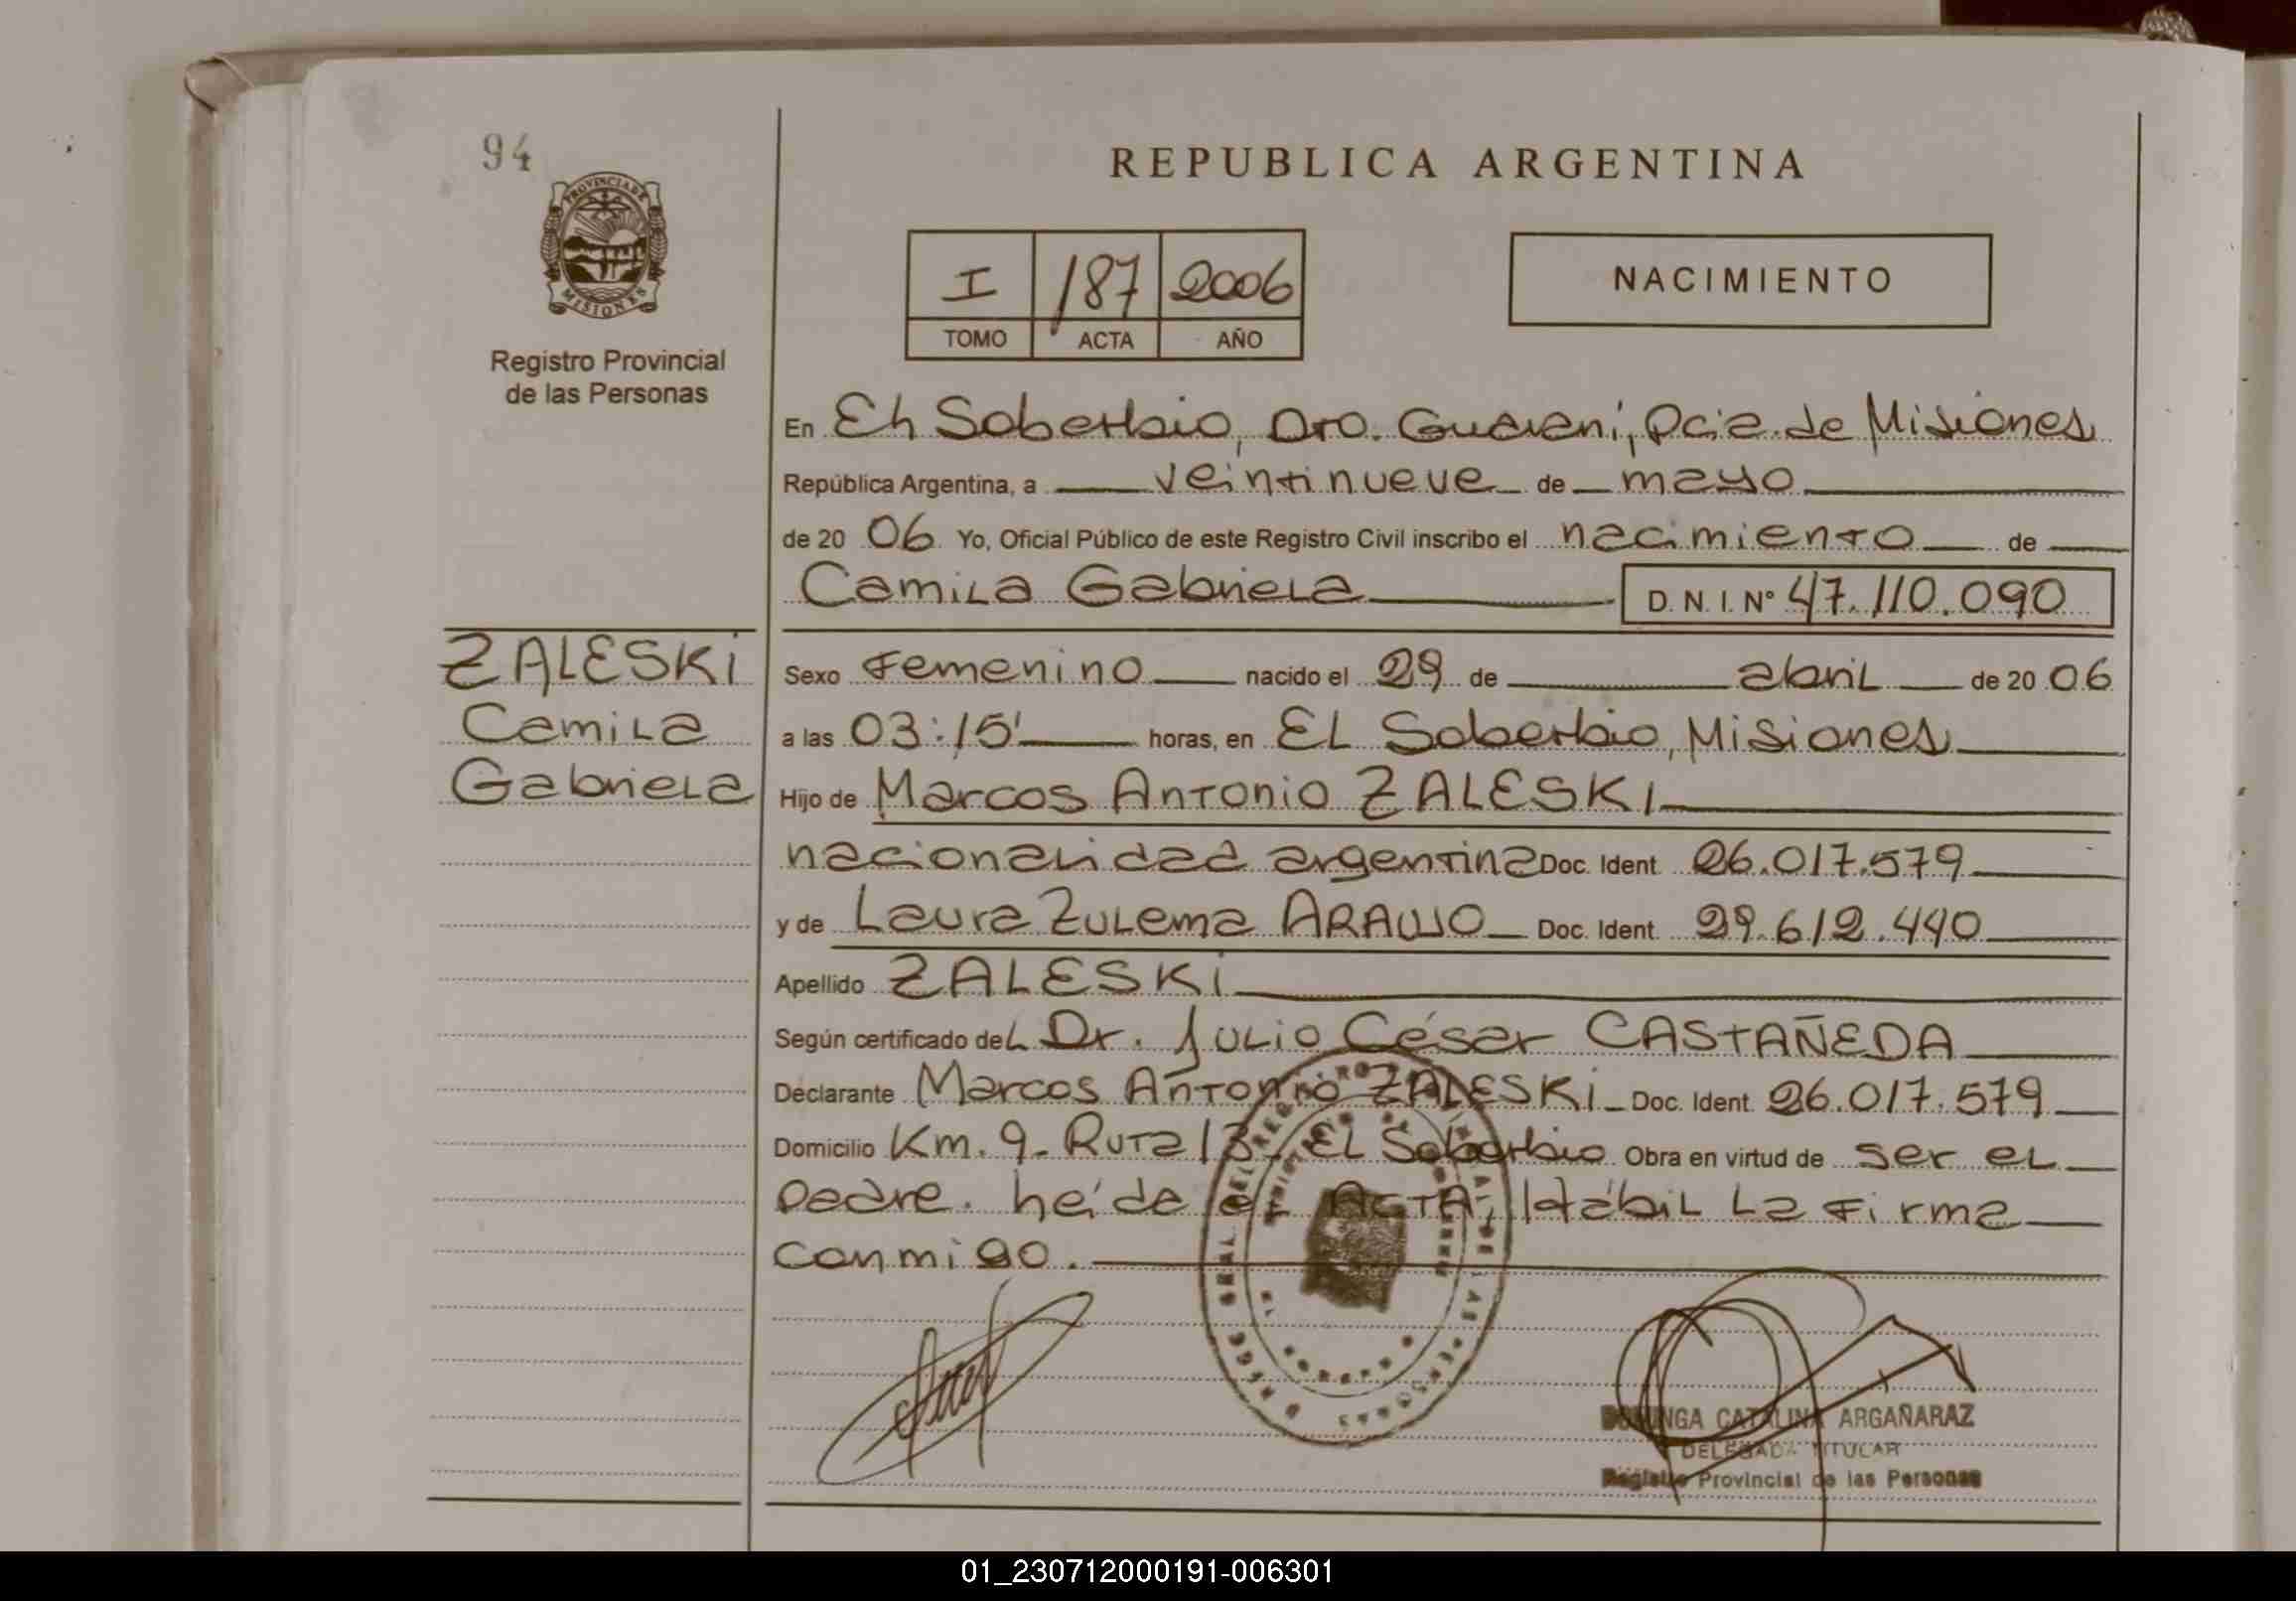 94
PROVINCIA DE
MISIONES
Registro Provincial
de las Personas
REPUBLICA ARGENTINA
I 187 2006
TOMO ACTA AÑO
NACIMIENTO
En El Soberbio, Dto. Guaraní, Pcia. de Misiones
República Argentina, a veintinueve de mayo
de 20 06 Yo, Oficial Público de este Registro Civil inscribo el nacimiento de
Camila Gabriela D. N. I. Nº 47.110.090
ZALESKI
Camila
Gabriela
Sexo Femenino nacido el 29 de abril de 20 06
a las 03:15' horas, en El Soberbio, Misiones
Hijo de Marcos Antonio ZALESKI
nacionalidad argentina Doc. Ident. 26.017.579
y de Laura Zulema ARAUJO Doc. Ident. 29.612.440
Apellido ZALESKI
Según certificado del Dr. Julio César CASTAÑEDA
Declarante Marcos Antonio ZALESKI Doc. Ident. 26.017.579
Domicilio Km. 9- Ruta 13- El Soberbio Obra en virtud de ser el
padre. Leída el ACTA, Hábil la firma
conmigo.
DOMINGA CATALINA ARGAÑARAZ
DELEGADA TITULAR
Registro Provincial de las Personas
01_230712000191-006301